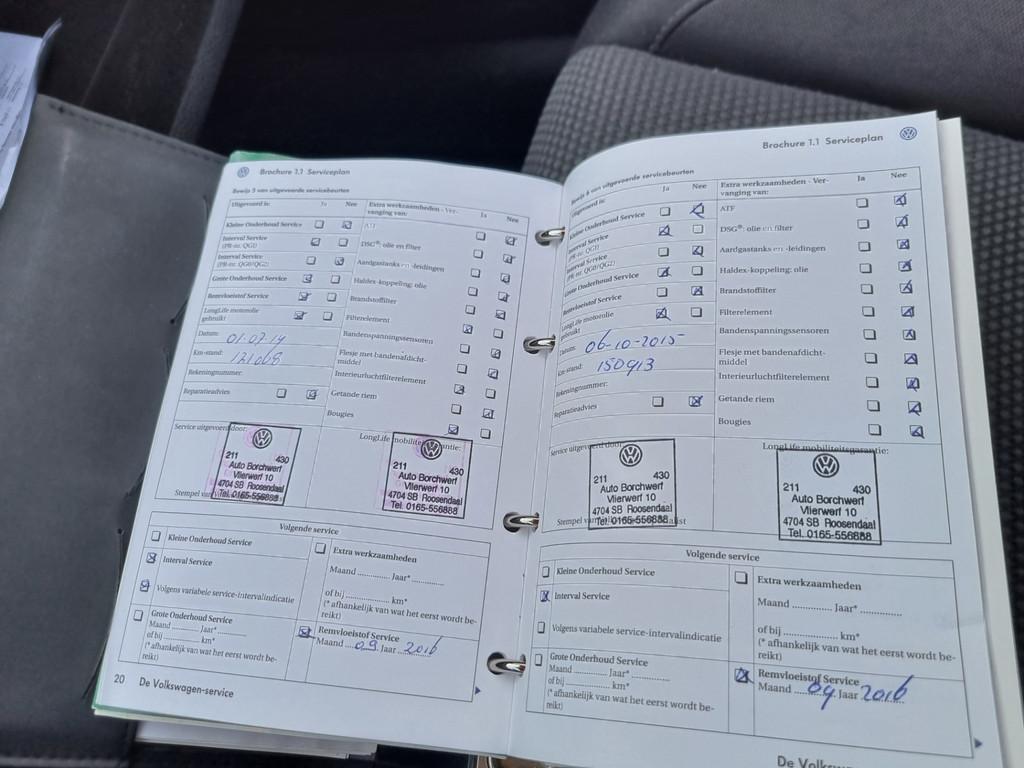 Brochure 1.1 Serviceplan
Bewijs 5 van uitgevoerde servicebeurten
Uitgevoerd is: Ja Nee
Kleine Onderhoud Service
Interval Service
(PR-nr. QG1)
Interval Service
(PR-nr. QG0/QG2)
Grote Onderhoud Service
Remvloeistof Service
LongLife motorolie
gebruikt
Datum: 01.07.14
Km-stand: 121068
Rekeningnummer:
Reparatieadvies
Extra werkzaamheden - Ver-
vanging van: Ja Nee
ATF
DSG®: olie en filter
Aardgastanks en -leidingen
Haldex-koppeling: olie
Brandstoffilter
Filterelement
Bandenspanningssensoren
Flesje met bandenafdicht-
middel
Interieurluchtfilterelement
Getande riem
Bougies
Service uitgevoerd door:
211 430
Auto Borchwerf
Vlierwerf 10
4704 SB Roosendaal
Tel. 0165-556888
Stempel van
LongLife mobiliteitsgarantie:
211 430
Auto Borchwerf
Vlierwerf 10
4704 SB Roosendaal
Tel. 0165-556888
Volgende service
Kleine Onderhoud Service
Interval Service
Volgens variabele service-intervalindicatie
Grote Onderhoud Service
Maand ............ Jaar* ............
of bij ............ km*
(* afhankelijk van wat het eerst wordt be-
reikt)
Extra werkzaamheden
Maand ............ Jaar* ............
of bij ............ km*
(* afhankelijk van wat het eerst wordt be-
reikt)
Remvloeistof Service
Maand 09 Jaar 2016
20 De Volkswagen-service
Brochure 1.1 Serviceplan
Bewijs 6 van uitgevoerde servicebeurten
Uitgevoerd is: Ja Nee
Kleine Onderhoud Service
Interval Service
(PR-nr. QG1)
Interval Service
(PR-nr. QG0/QG2)
Grote Onderhoud Service
Remvloeistof Service
LongLife motorolie
gebruikt
Datum: 06-10-2015
Km-stand: 150913
Rekeningnummer:
Reparatieadvies
Extra werkzaamheden - Ver-
vanging van: Ja Nee
ATF
DSG®: olie en filter
Aardgastanks en -leidingen
Haldex-koppeling: olie
Brandstoffilter
Filterelement
Bandenspanningssensoren
Flesje met bandenafdicht-
middel
Interieurluchtfilterelement
Getande riem
Bougies
Service uitgevoerd door:
211 430
Auto Borchwerf
Vlierwerf 10
4704 SB Roosendaal
Tel. 0165-556888
Stempel van
LongLife mobiliteitsgarantie:
211 430
Auto Borchwerf
Vlierwerf 10
4704 SB Roosendaal
Tel. 0165-556888
Volgende service
Kleine Onderhoud Service
Interval Service
Volgens variabele service-intervalindicatie
Grote Onderhoud Service
Maand ............ Jaar* ............
of bij ............ km*
(* afhankelijk van wat het eerst wordt be-
reikt)
Extra werkzaamheden
Maand ............ Jaar* ............
of bij ............ km*
(* afhankelijk van wat het eerst wordt be-
reikt)
Remvloeistof Service
Maand 09 Jaar 2016
De Volkswagen-